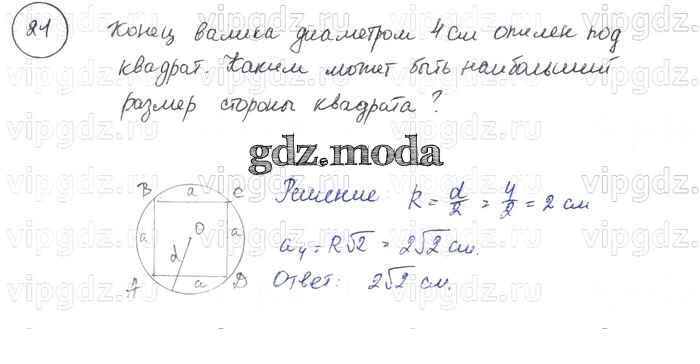 24
Конец валика диаметром 4 см опилен под
квадрат. Каким может быть наибольший
размер стороны квадрата?
gdz.moda
B a C
Решение: R = d/2 = 4/2 = 2 см
a O a
d
a₄ = R√2 = 2√2 см.
A a D
Ответ: 2√2 см.
vipgdz.ru